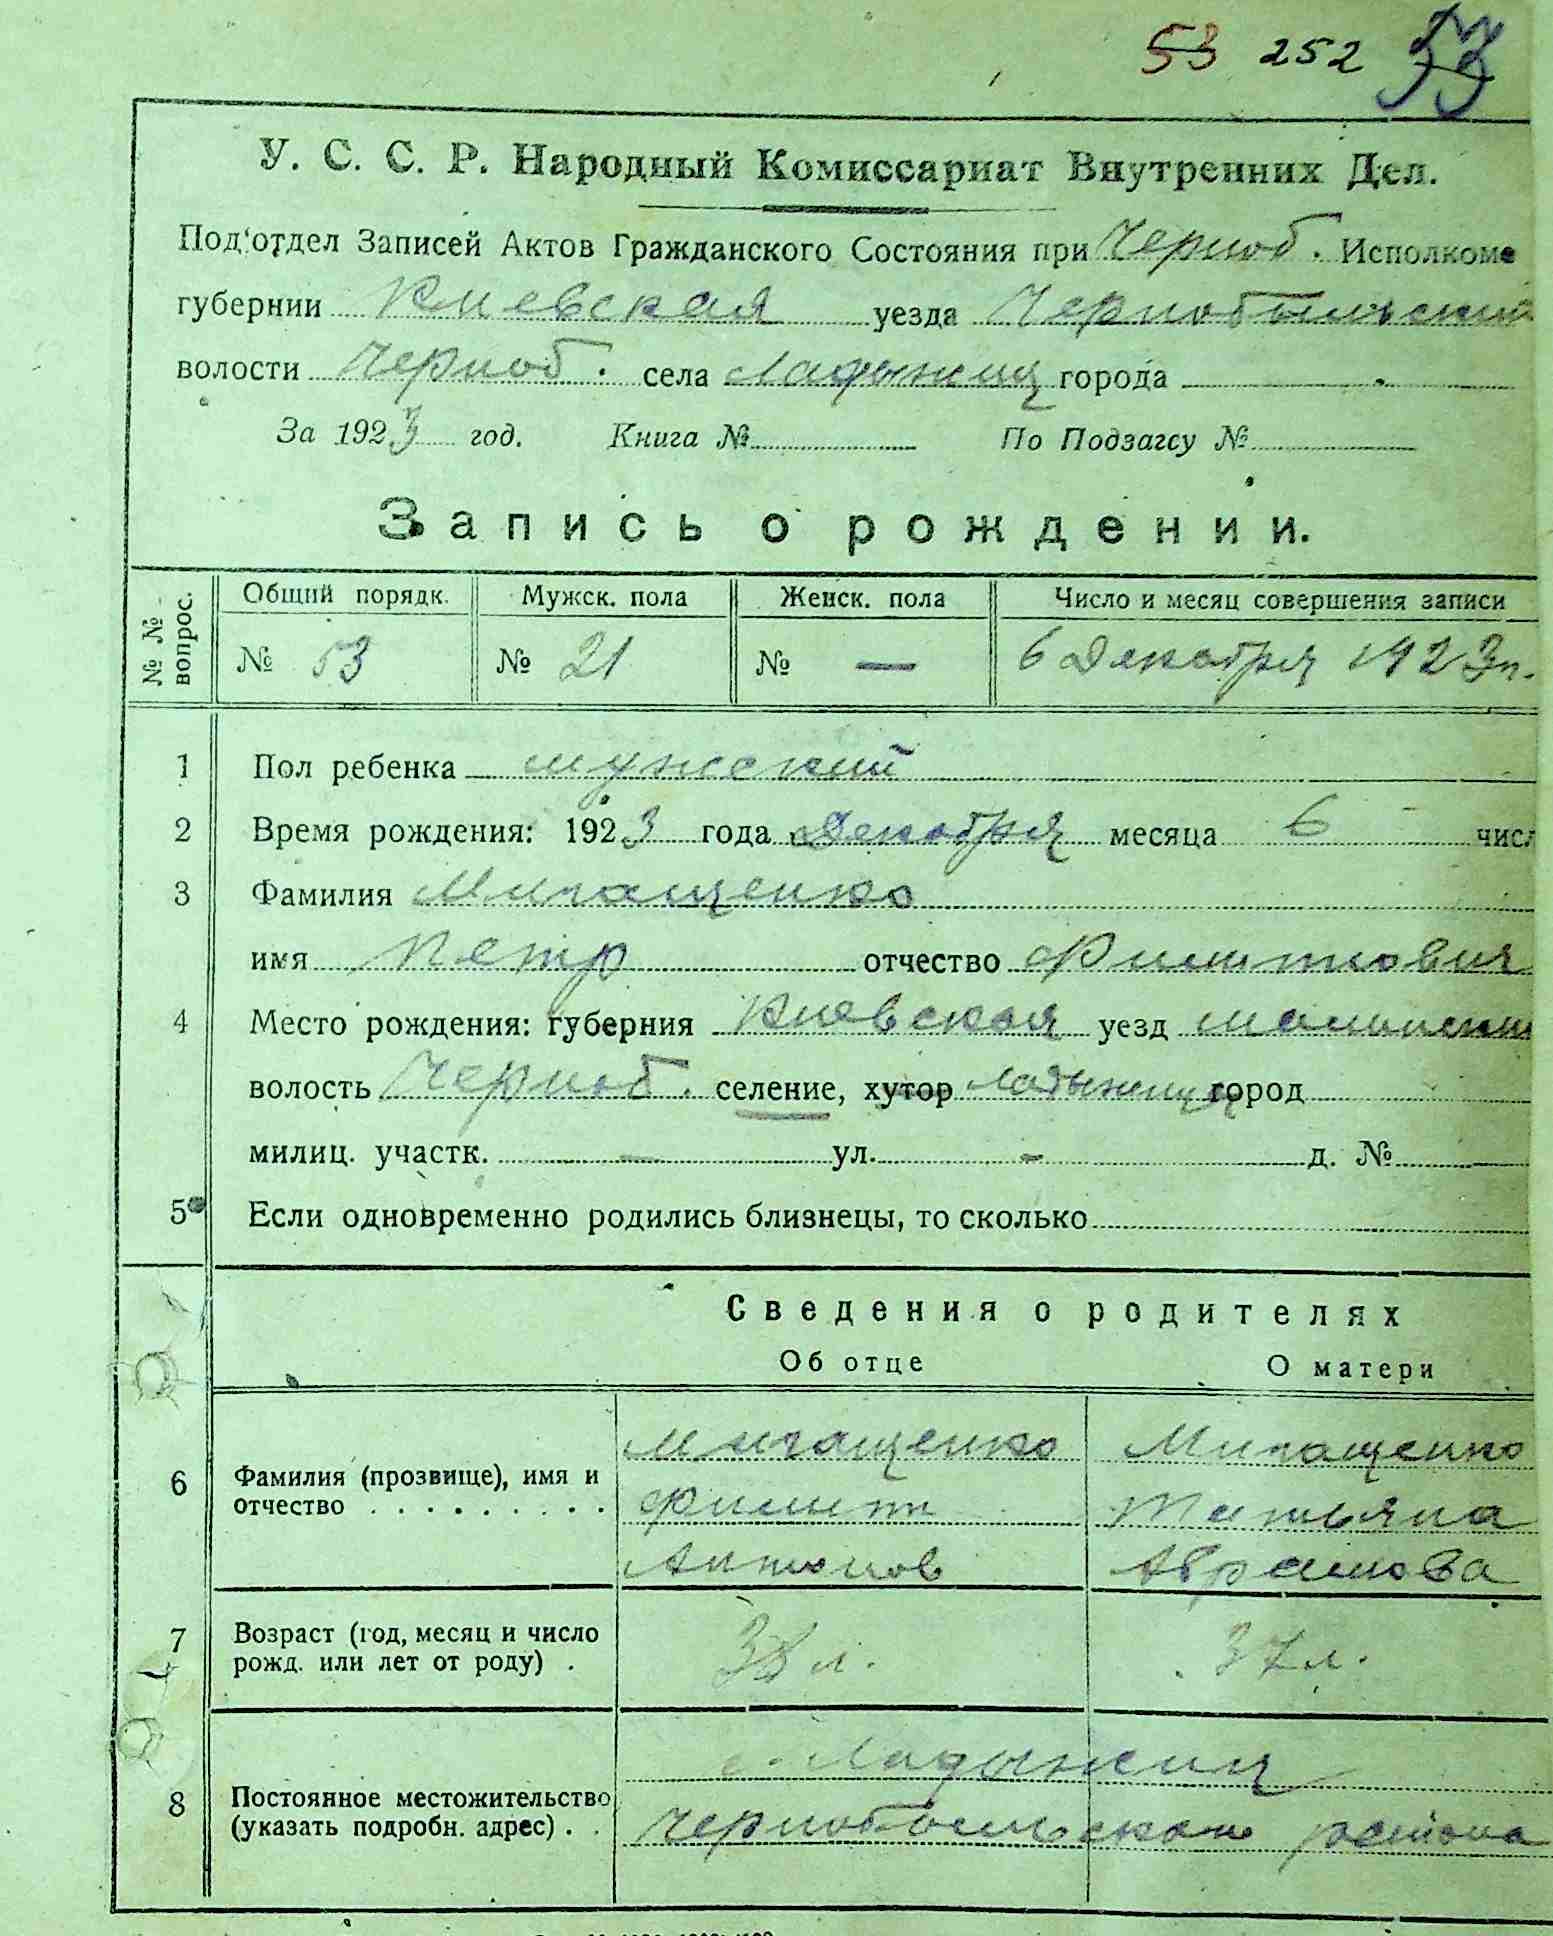 53 252 53
У. С. С. Р. Народный Комиссариат Внутренних Дел.
Под'отдел Записей Актов Гражданского Состояния при Черноб. Исполкоме
губернии Киевская уезда Чернобыльский
волости Черноб. села Ладыжич города
За 1923 год. Книга № По Подзагсу №
Запись о рождении.
№ № вопрос. Общий порядк. Мужск. пола Женск. пола Число и месяц совершения записи
№ 53 № 21 № — 6 Декабря 1923 г.
1 Пол ребенка мужский
2 Время рождения: 1923 года Декабря месяца 6 числ
3 Фамилия Мигащенко
имя Петр отчество Филиппович
4 Место рождения: губерния Киевская уезд
волость Черноб. селение, хутор Ладыжичи город
милиц. участк. — ул. - д. №
5 Если одновременно родились близнецы, то сколько
Сведения о родителях
Об отце О матери
6 Фамилия (прозвище), имя и отчество Мигащенко Мигащенко
Филипп Татьяна
Антонов Абрамова
7 Возраст (год, месяц и число рожд. или лет от роду) . 38 л. 37 л.
8 Постоянное местожительство (указать подробн. адрес) . . с. Ладыжич
Чернобыльского района